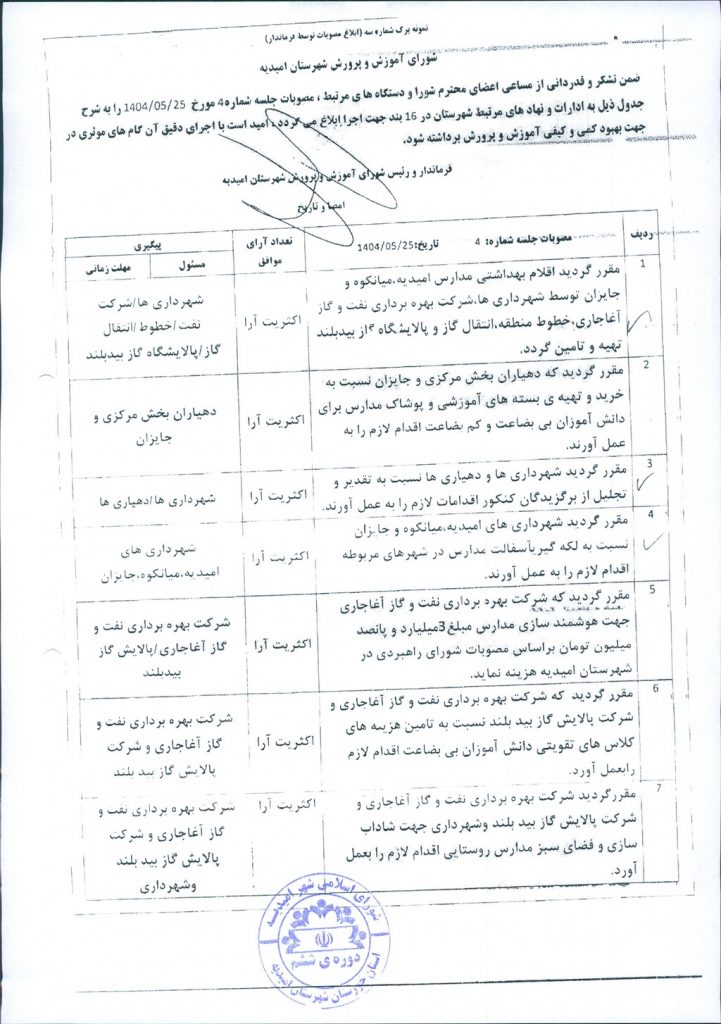 نمونه برگ شماره سه (ابلاغ مصوبات توسط فرماندار)
شورای آموزش و پرورش شهرستان امیدیه
ضمن تشکر و قدردانی از مساعی اعضای محترم شورا و دستگاه های مرتبط ، مصوبات جلسه شماره 4 مورخ 1404/05/25 را به شرح
جدول ذیل به ادارات و نهاد های مرتبط شهرستان در 16 بند جهت اجرا ابلاغ می گردد ، امید است با اجرای دقیق آن گام های موثری در
جهت بهبود کمی و کیفی آموزش و پرورش برداشته شود.
فرماندار و رئیس شورای آموزش و پرورش شهرستان امیدیه
امضا و تاریخ
ردیف
مصوبات جلسه شماره: 4 تاریخ:1404/05/25
تعداد آرای
موافق
پیگیری
مسئول
مهلت زمانی
1
مقرر گردید اقلام بهداشتی مدارس امیدیه،میانکوه و
جایزان توسط شهرداری ها،شرکت بهره برداری نفت و گاز
آغاجاری،خطوط منطقه،انتقال گاز و پالایشگاه گاز بیدبلند
تهیه و تامین گردد.
اکثریت آرا
شهرداری ها/شرکت
نفت/خطوط/انتقال
گاز/پالایشگاه گاز بیدبلند
2
مقرر گردید که دهیاران بخش مرکزی و جایزان نسبت به
خرید و تهیه ی بسته های آموزشی و پوشاک مدارس برای
دانش آموزان بی بضاعت و کم بضاعت اقدام لازم را به
عمل آورند.
اکثریت آرا
دهیاران بخش مرکزی و
جایزان
3
مقرر گردید شهرداری ها و دهیاری ها نسبت به تقدیر و
تجلیل از برگزیدگان کنکور اقدامات لازم را به عمل آورند.
اکثریت آرا
شهرداری ها/دهیاری ها
4
مقرر گردید شهرداری های امیدیه،میانکوه و جایزان
نسبت به لکه گیریآسفالت مدارس در شهرهای مربوطه
اقدام لازم را به عمل آورند.
اکثریت آرا
شهرداری های
امیدیه،میانکوه،جایزان
5
مقرر گردید که شرکت بهره برداری نفت و گاز آغاجاری
جهت هوشمند سازی مدارس مبلغ3میلیارد و پانصد
میلیون تومان براساس مصوبات شورای راهبردی در
شهرستان امیدیه هزینه نماید.
اکثریت آرا
شرکت بهره برداری نفت و
گاز آغاجاری/پالایش گاز
بیدبلند
6
مقرر گردید که شرکت بهره برداری نفت و گاز آغاجاری و
شرکت پالایش گاز بید بلند نسبت به تامین هزینه های
کلاس های تقویتی دانش آموزان بی بضاعت اقدام لازم
رابعمل آورد.
اکثریت آرا
شرکت بهره برداری نفت و
گاز آغاجاری و شرکت
پالایش گاز بید بلند
7
مقررگردید شرکت بهره برداری نفت و گاز آغاجاری و
شرکت پالایش گاز بید بلند وشهرداری جهت شاداب
سازی و فضای سبز مدارس روستایی اقدام لازم را بعمل
آورد.
اکثریت آرا
شرکت بهره برداری نفت و
گاز آغاجاری و شرکت
پالایش گاز بید بلند
وشهرداری
شورای اسلامی شهر امیدیه
دوره ی ششم
استان خوزستان شهرستان امیدیه